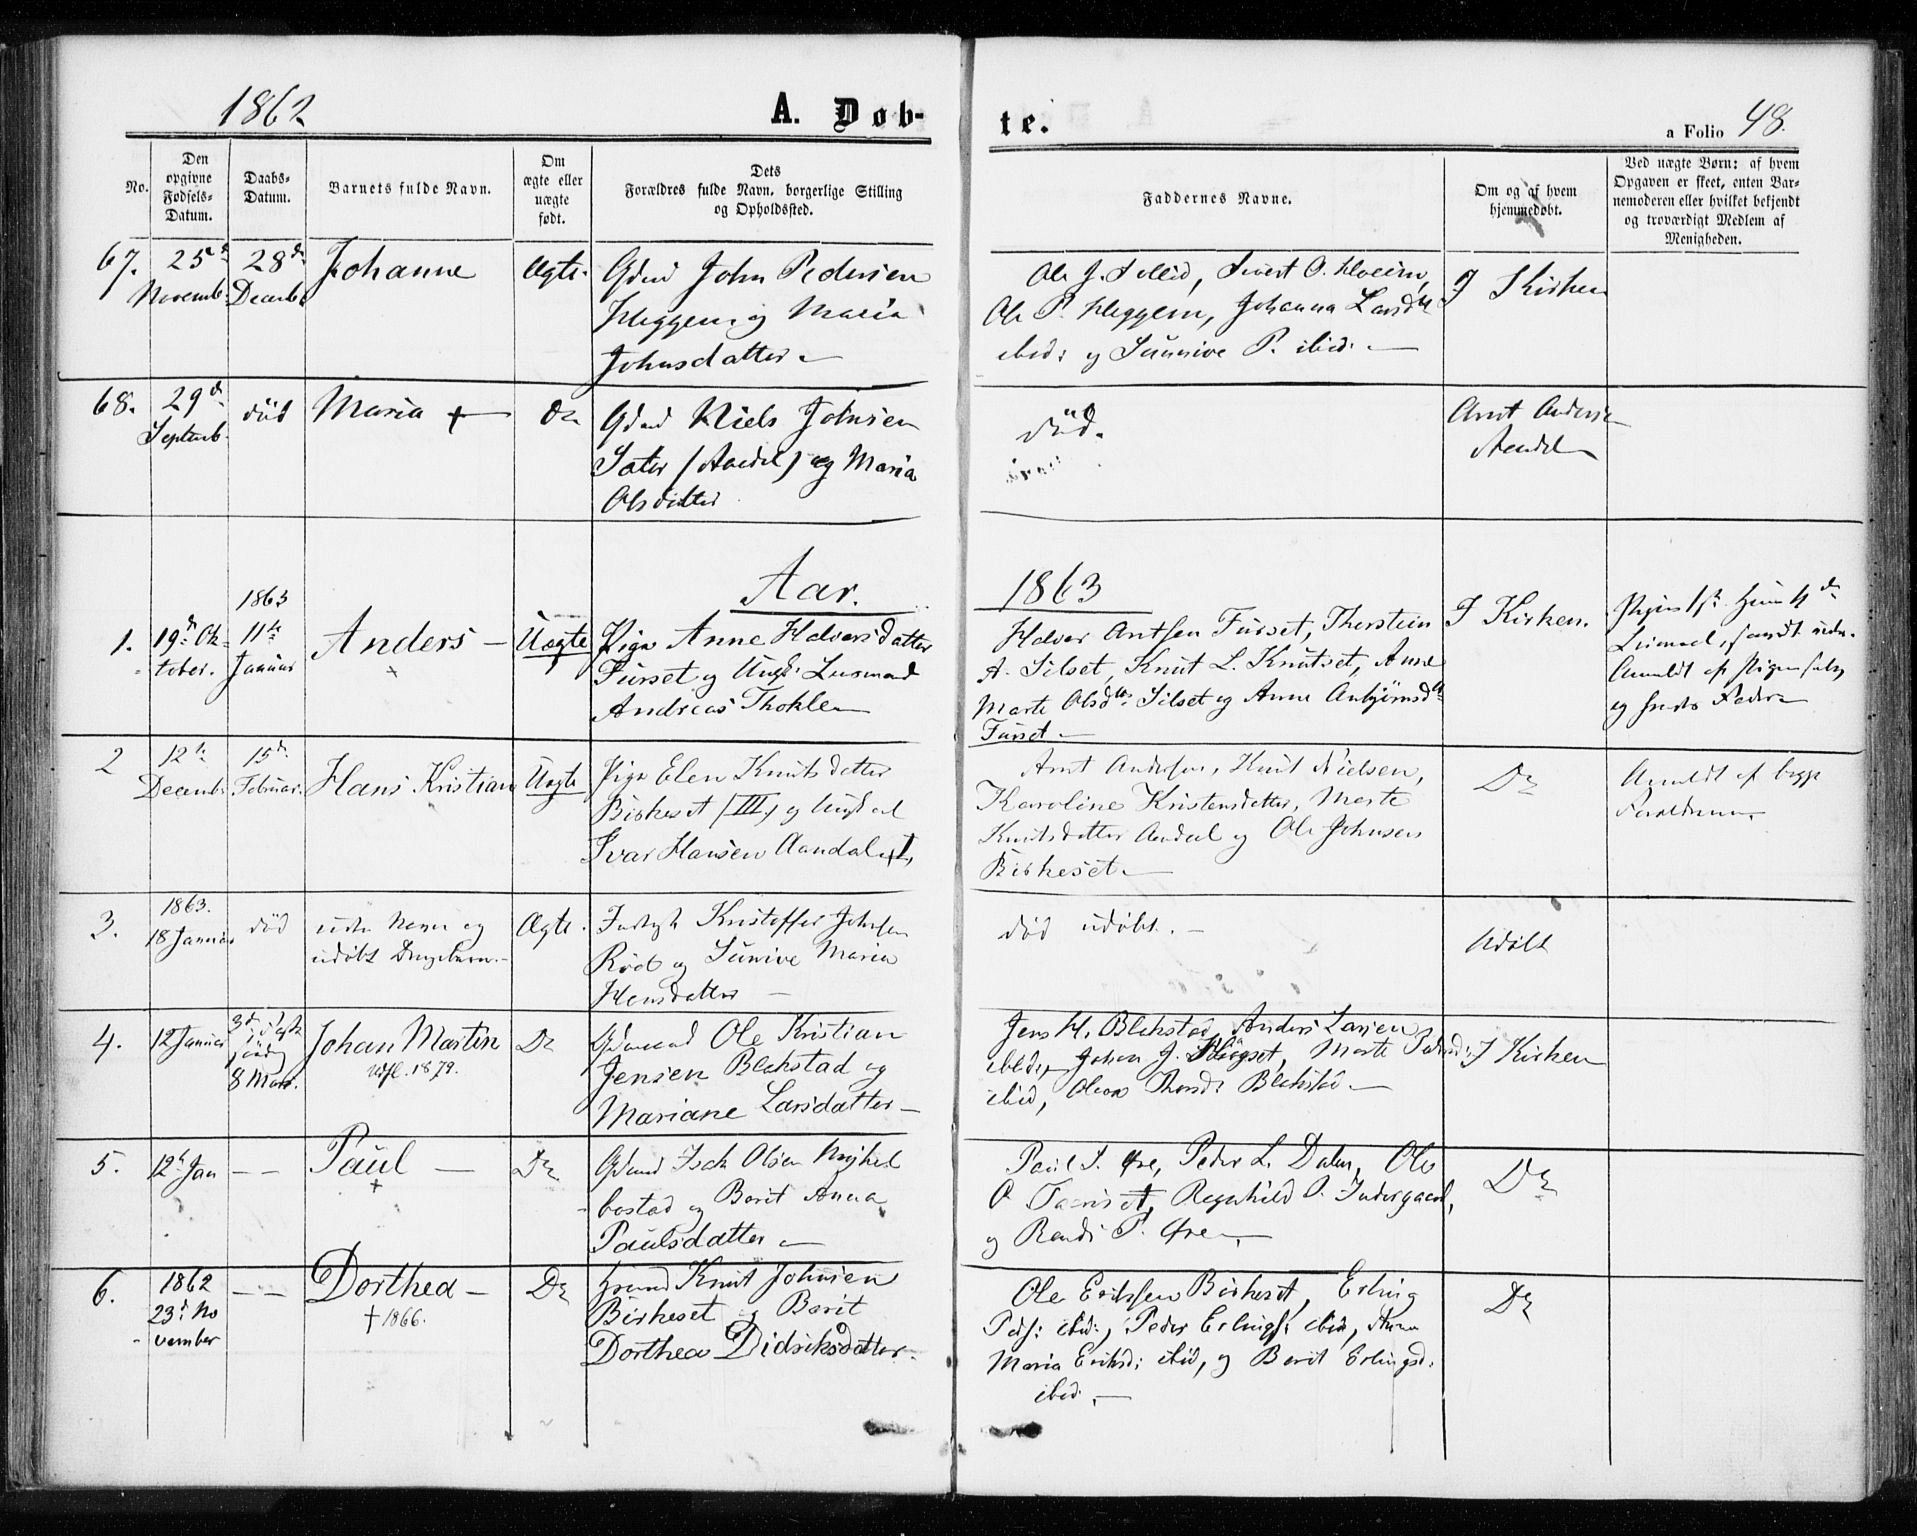 1862
A. Døb-
te.
a Folio 48.
No.
Den
opgivne
Fødsels-
Datum.
Daabs-
Datum.
Barnets fulde Navn.
Om
ægte eller
uægte
født.
Dets
Forældres fulde Navn, borgerlige Stilling
og Opholdssted.
Faddernes Navne.
Om og af hvem
hjemmedøbt.
Ved uægte Børn: af hvem
Opgaven er skeet, enten Bar-
nemoderen eller hvilket bekjendt
og troværdigt Medlem af
Menigheden.
67.
25de
Novemb.
28de
Decemb.
Johanne
Ægte.
Gdmd John Pedersen
Heggem og Maria
Johnsdatter
Ole J. Sollid, Sivert O.
Ole P. Heggem, Johanna Larsdtr
ibid: og Sünnive P. ibid.
I Kirken
68.
29de
Septemb.
død
Maria +
Do
Gdmd Niels Johnsen
Sæter og Maria
Olsdatter
død.
Arnt Anders
Aar.
1863
1.
19de Ok-
tober.
1863
11te
Januar
Anders
+
Uægte
Pige Anne Halvorsdatter
Furset og Ungk: Lensmand
Andreas Thokle
Halvor Antsen Furset, Thorstein
A. Silset, Knut L. Knutset, Anne
Marte Olsdtr Silset og Anne
Furset
I Kirken.
Anmeldt af Pigen selv
og Fader
2
12te
Decemb.
15de
Februar.
Hans Kristian
Uægte
Pige Elen Knutsdatter
Birkeset (III) og Ungkarl
Ivar Hansen Aandal
Arnt Andersen, Knut Nielsen,
Karoline Kristensdatter, Marte
Knutsdatter Aandal og Ole Johnsen
Birkeset
Do
Anmeldt af begge
Forældrene
3.
1863.
18 Januar
død
uden Navn og
udøbt Drengebarn.
Ægte.
Kristoffer Johnsen
Rød og Sünnive Maria
Hansdatter
død udøbt.
Udøbt
4.
12 Januar
8 Mars.
Johan Martin
Udfl. 1879.
Do
Gdmand Ole Kristian
Jensen Blekstad og
Mariane Larsdatter
Jens H. Blekstad, Anders Larsen
ibid, Johan J.
ibid, Blekstad
I Kirken
5.
12te Jan
Paul
+
Do
Gdmd Isak Olsen
bostad og Berit Anna
Paulsdatter
Paul I. Øre, Peder L. Dalen, Ole
O. Ragnhild P. Indergaard,
og Randi P. Øre
Do
6.
1862
23de No
vember
Dorthea
† 1866.
Do
Knut Johnsen
Birkeset og Berit
Dorthea Didriksdatter.
Ole Eriksen Birkeset, Erling
Peds: ibid:, Peder Erlings: ibid, Anna
Maria Eriksd: ibid, og Berit Erlingsd:
ibid.
Do